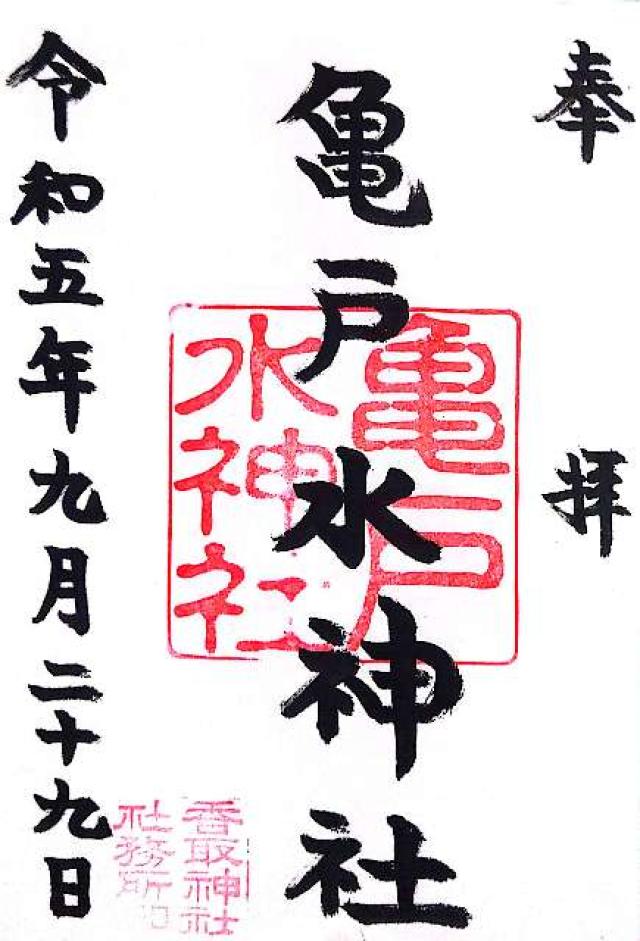 奉拝
亀戸水神社
亀戸
水神社
令和五年九月二十九日
香取神社
社務所印